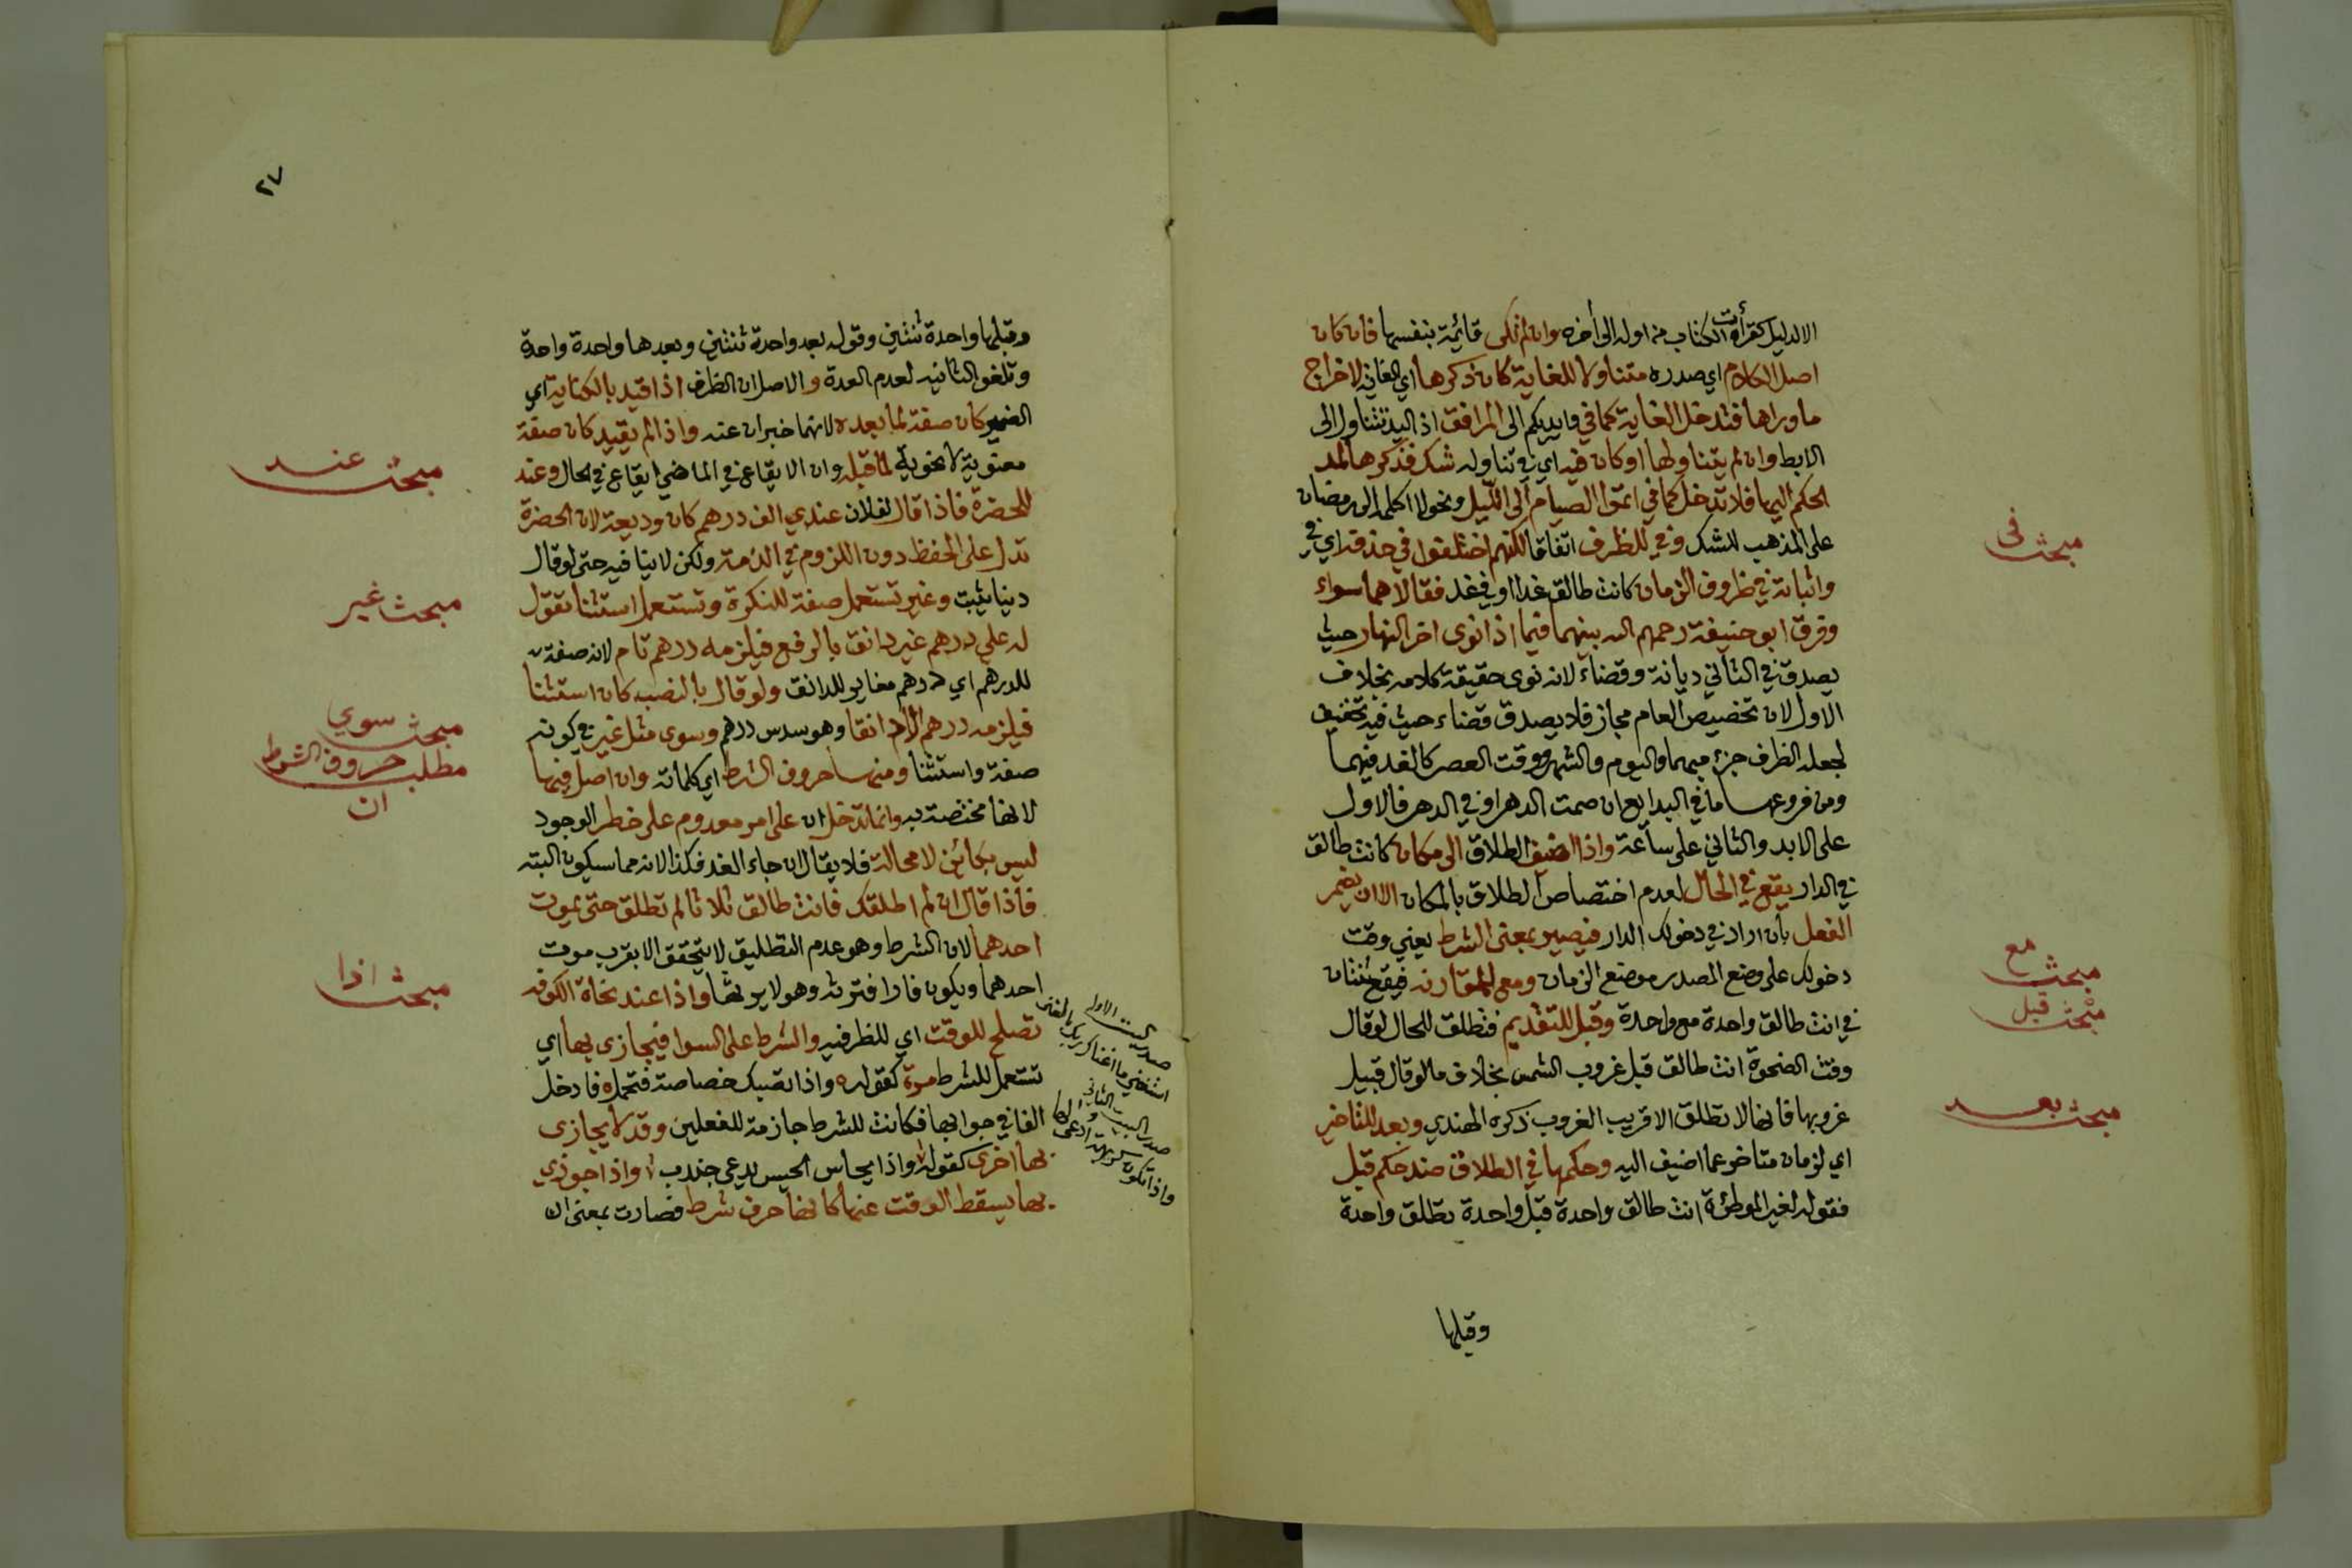 الا لدليل كقرأت الكتاب من اوله الى أخره وان لم تكن قائمة بنفسها فان كان
اصل الكلام اي صدره متناولا للغاية كان ذكرها اي الغاية لاخراج
ما وراها فتدخل الغاية كما في وايديكم الى المرافق اذ اليد تتناول الى
الابط وان لم يتناولها او كان فيه اي في تناوله شك فذكرها لمد
الحكم اليها فلا تدخل كما في اتموا الصيام الى الليل ونحو لا اكلم الى رمضان
على المذهب للشك وفي للظرف اتفاقا لكنهم اختلفوا في حذفه اي في
واثباته في ظروف الزمان كانت طالق غدا او في غد فقالا هما سواء
وفرق ابو حنيفة رحمهم الله بينهما فيما اذا نوى اخر النهار حيث
يصدق في الثاني ديانة وقضاء لانه نوى حقيقة كلامه بخلاف
الاول لان تخصيص العام مجاز فلا يصدق قضاء حيث فيه تخفيف
لجعله الظرف جزء مبهما واليوم والشهر ووقت العصر كالغد فيهما
ومن فروعها ما في البدايع ان صمت الدهر او في الدهر فالاول
على الابد والثاني على ساعة واذا اضيف الطلاق الى مكان كانت طالق
في الدار يقع في الحال لعدم اختصاص الطلاق بالمكان الا ان يضمر
الفعل بأن اراد في دخولك الدار فيصير بمعنى الشرط يعني وقت
دخولك على وضع المصدر موضع الزمان ومع للمقارنه فيقع ثنتان
في انت طالق واحدة مع واحدة وقبل للتقديم فتطلق للحال لو قال
وقت الضحوة انت طالق قبل غروب الشمس بخلاف ما لو قال قبيل
غروبها فانها لا تطلق الا قريب الغروب ذكره الهندي وبعد للتاخير
اي لزمان متاخر عما اضيف اليه وحكمها في الطلاق ضد حكم قبل
فقوله لغير الموطؤة انت طالق واحدة قبل واحدة تطلق واحدة
وقبلها
مبحث فى
مبحث مع
مبحث قبل
مبحث بعد
٢٧
وقبلها واحدة ثنتين وقوله بعد واحدة ثنتين وبعدها واحدة واحدة
وتلغو الثانيه لعدم العدة والاصل ان الظرف اذا قيد بالكناية اي
الضمير كان صفة لما بعده لانهما خبران عنه واذا لم يقيد كان صفة
معنوية لا نحوية لما قبله وان الايقاع في الماضي ايقاع في الحال وعند
للحضرة فاذا قال لفلان عندي الف درهم كان وديعة لان الحضرة
تدل على الحفظ دون اللزوم في الذمة ولكن لا ينافيه حتى لو قال
دينا يثبت وغير تستعمل صفة للنكرة وتستعمل استثنا تقول
له علي درهم غير دانق بالرفع فيلزمه درهم تام لانه صفة
للدرهم اي درهم مغاير للدانق ولو قال بالنصب كان استثنا
فيلزمه درهم الا دانقا وهو سدس درهم وسوى مثل غير في كونه
صفة واستثنا ومنها حروف الشرط اي كلماته وان اصل فيها
لانها مختصة به وانما تدخل ان على امر معدوم على خطر الوجود
ليس بكائن لا محالة فلا يقال ان جاء الغد فكذا لانه مما سيكون البته
فاذا قال ان لم اطلقك فانت طالق ثلاثا لم تطلق حتى يموت
احدهما لان الشرط وهو عدم التطليق لا يتحقق الا بقرب موت
احدهما ويكون فارا فترثه وهو لا يرثها واذا عند نحاة الكوفه
تصلح للوقت اي للظرفيه والشرط على السوا فيجازى بها اي
تستعمل للشرط مرة كقوله واذا تصبك خصاصة فتجمل فادخل
الفا في جوابها فكانت للشرط جازمة للفعلين وقد لا يجازى
بها اخرى كقوله واذا يحاس الحيس يدعى جندب واذا جوزي
بها يسقط الوقت عنها كانها حرف شرط فصارت بمعنى ان
صدر البيت الاول
استغني ما اغناك ربك بالغنى
صدر البيت الثاني
واذا تكون كريهة ادعى لها
مبحث عند
مبحث غير
مبحث سوي
مطلب حروف الشرط
ان
مبحث اذا